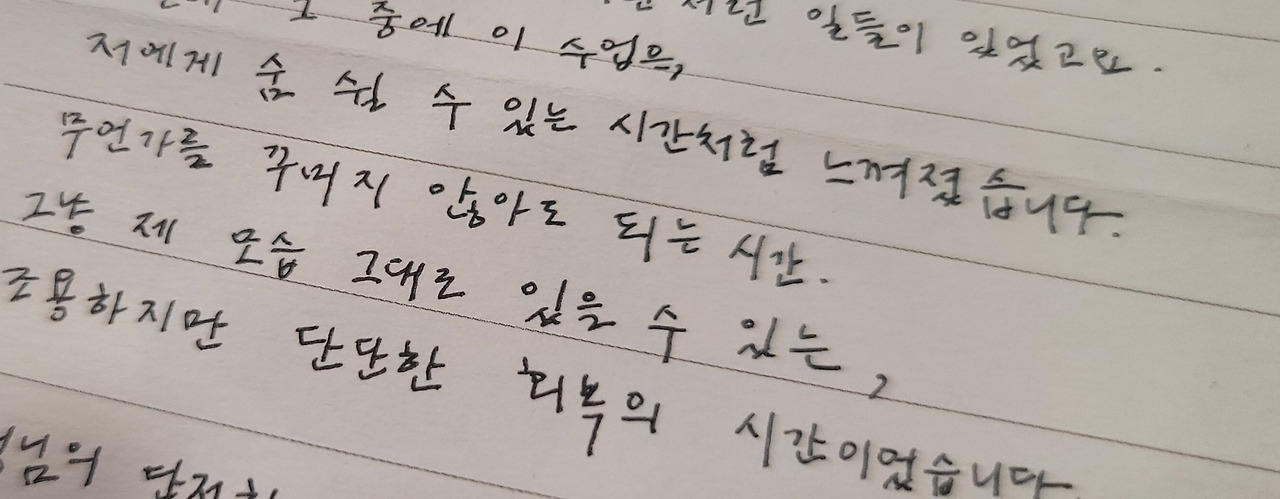 일들이 있었고요.
그 중에 이 수업은,
저에게 숨 쉴 수 있는 시간처럼 느껴졌습니다.
무언가를 꾸미지 않아도 되는 시간.
그냥 제 모습 그대로 있을 수 있는,
조용하지만 단단한 회복의 시간이었습니다